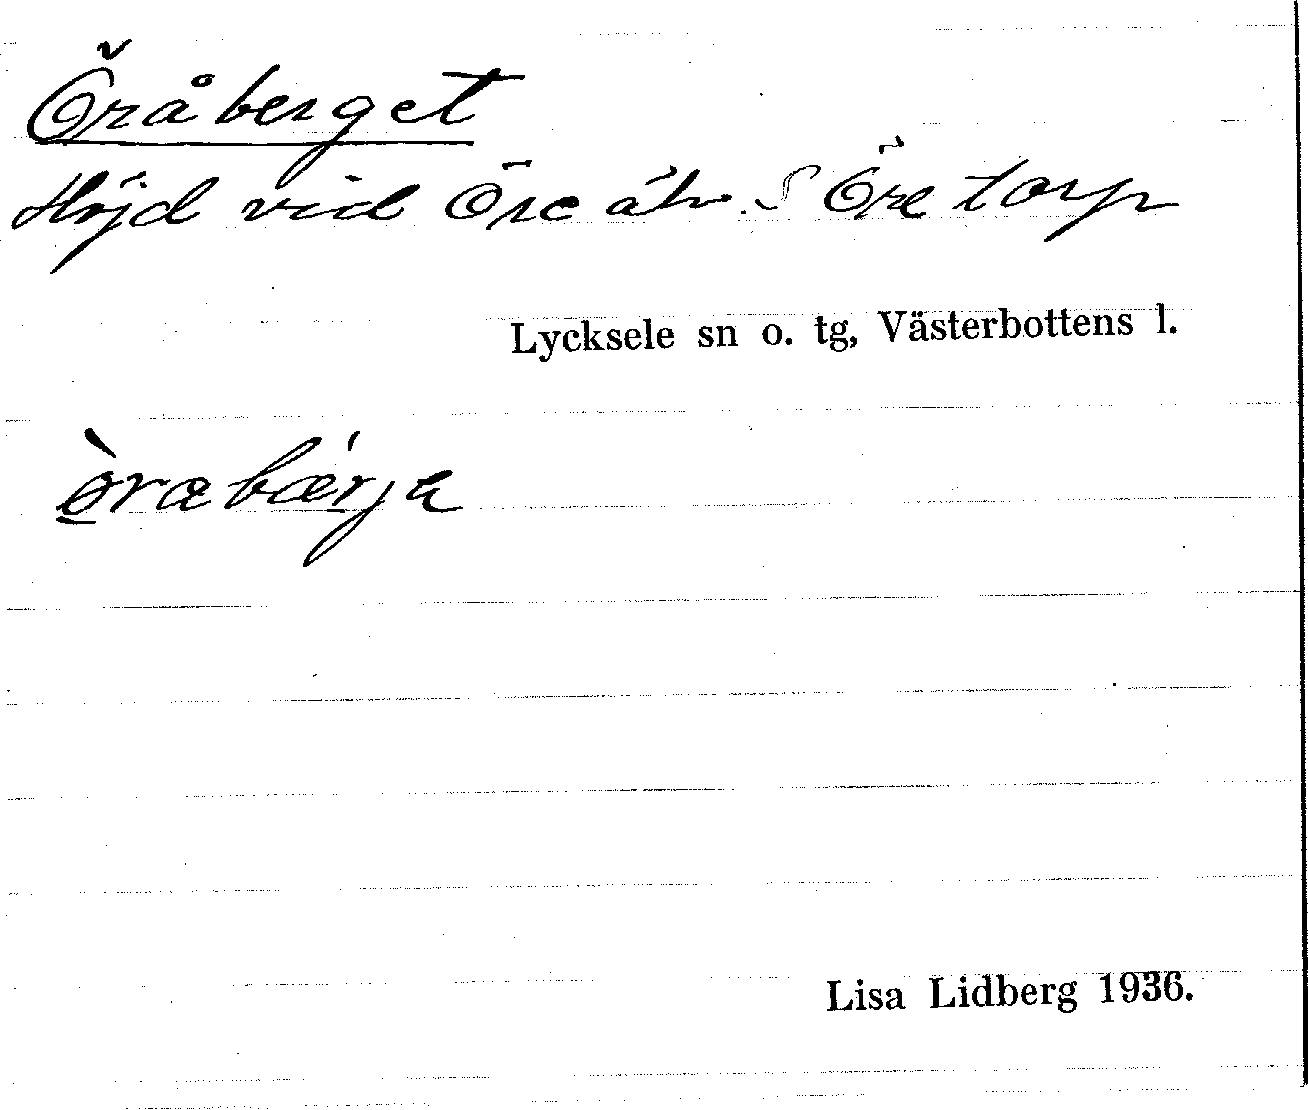 Öråberget
Höjd vid Öre älv. S Öretorp
Lycksele sn o. tg, Västerbottens l.
ò̱rabǽrja
Lisa Lidberg 1936.